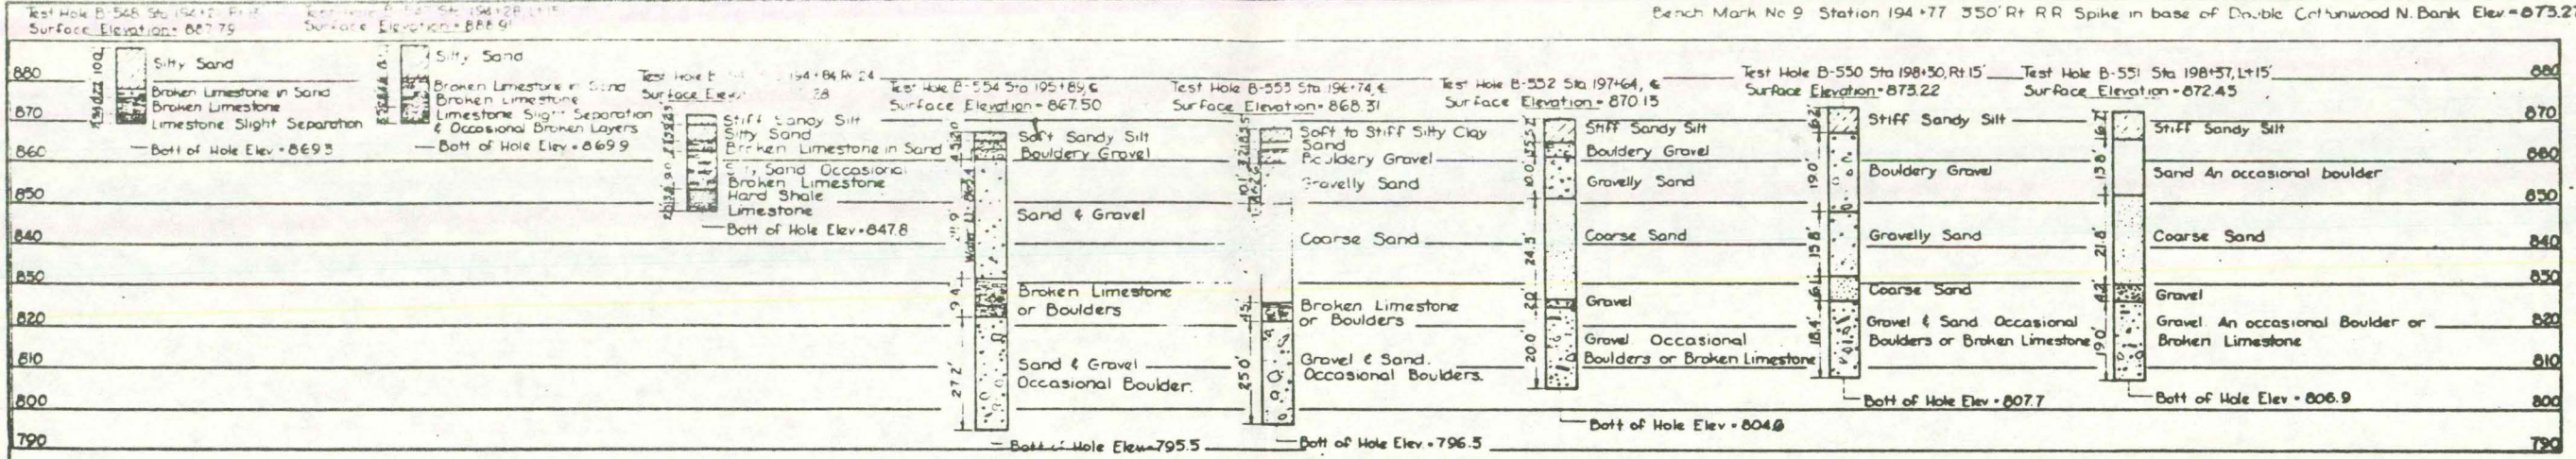 Test Hole B-548 Sta
Surface Elevation = 887.79
Surface Elevation = 888.9
Bench Mark No 9 Station 194+77 350' Rt RR Spike in base of Double Cottonwood N. Bank Elev = 873.27
880
870
860
850
840
830
820
810
800
790
Silty Sand
Broken Limestone in Sand
Broken Limestone
Limestone Slight Separation
Bott of Hole Elev = 869.3
Silty Sand
Broken Limestone in Sand
Broken Limestone
Limestone Slight Separation
& Occasional Broken Layers
Bott of Hole Elev = 869.9
Test Hole 194+84 Rt 24
Surface Elev.
Stiff Sandy Silt
Silty Sand
Broken Limestone in Sand
Silty Sand Occasional
Broken Limestone
Hard Shale
Limestone
Bott of Hole Elev = 847.8
Test Hole B-554 Sta 195+89, ℄
Surface Elevation = 867.50
Soft Sandy Silt
Bouldery Gravel
Sand & Gravel
Broken Limestone
or Boulders
Sand & Gravel
Occasional Boulder.
9.4'
27.2'
Bott of Hole Elev = 795.5
Test Hole B-553 Sta 196+74, ℄
Surface Elevation = 868.31
Soft to Stiff Silty Clay
Sand
Bouldery Gravel
Gravelly Sand
Coarse Sand
Broken Limestone
or Boulders
Gravel & Sand.
Occasional Boulders.
4.5'
25.0'
Bott of Hole Elev = 796.5
Test Hole B-552 Sta 197+64, ℄
Surface Elevation = 870.15
Stiff Sandy Silt
Bouldery Gravel
Gravelly Sand
Coarse Sand
Gravel
Gravel Occasional
Boulders or Broken Limestone
10.0'
24.5'
2.0'
20.0'
Bott of Hole Elev =
Test Hole B-550 Sta 198+50, Rt 15'
Surface Elevation = 873.22
Stiff Sandy Silt
Bouldery Gravel
Gravelly Sand
Coarse Sand
Gravel & Sand Occasional
Boulders or Broken Limestone
6.2'
19.0'
15.8'
6.1'
18.4'
Bott of Hole Elev = 807.7
Test Hole B-551 Sta 198+57, Lt 15'
Surface Elevation = 872.45
Stiff Sandy Silt
Sand An occasional boulder
Coarse Sand
Gravel
Gravel An occasional Boulder or
Broken Limestone
6.7'
13.8'
21.8'
4.2'
19.0'
Bott of Hole Elev = 806.9
880
870
860
850
840
830
820
810
800
790